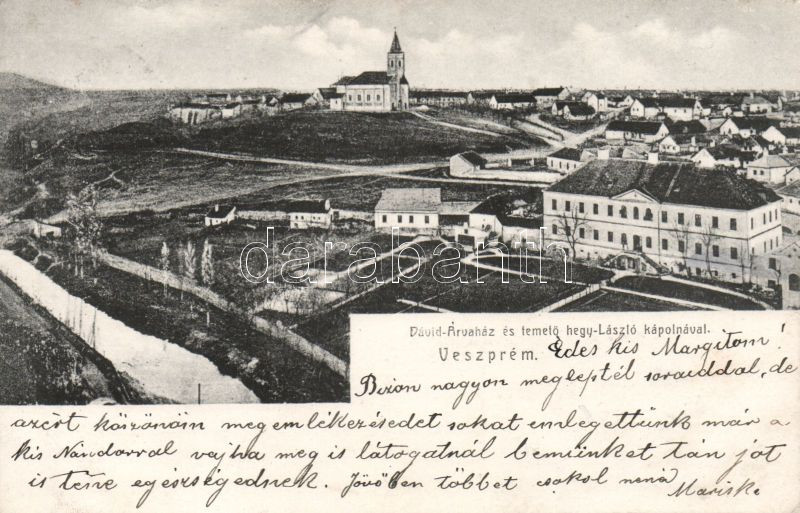 darabanth
Dávid-Árvaház és temető hegy-László kápolnával.
Veszprém.
Édes kis Margitom!
Bizon nagyon megleptél soraiddal, de
azért köszönöm megemlékezésedet sokat emlegettünk már a
kis Nándorral vajha meg is látogatnál bemünket tán jót
is tene egészségednek. Jövőben többet csokol nena
Mariska